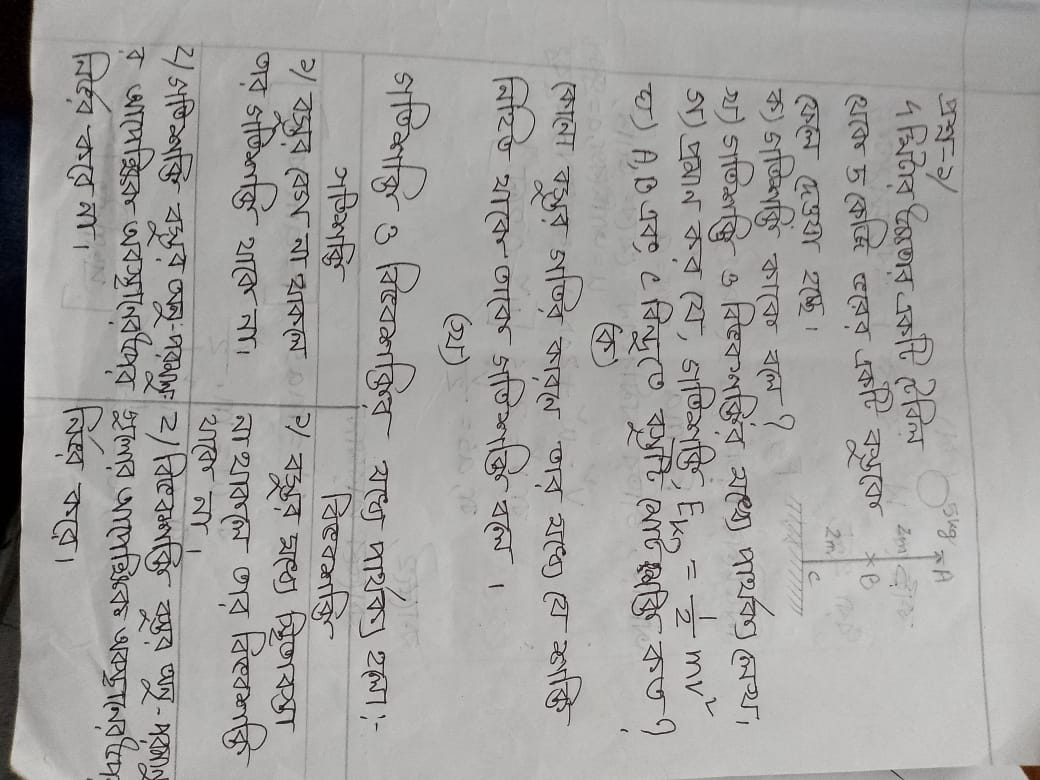 প্রশ্ন-১/
৭ মিটার উচ্চতার একটি টেবিল
থেকে 5 কেজি ভরের একটি বস্তুকে
ফেলে দেওয়া হচ্ছে।
5kg
×A
2m
×B
2m
C
ক) গতিশক্তি কাকে বলে?
খ) গতিশক্তি ও বিভবশক্তির মধ্যে পার্থক্য লেখ।
গ) প্রমান কর যে, গতিশক্তি, Ek = 1/2 mv²
ঘ) A, B এবং C বিন্দুতে বস্তুটি মোট শক্তি কত?
(ক)
কোনো বস্তুর গতির কারনে তার মধ্যে যে শক্তি
নিহিত থাকে তাকে গতিশক্তি বলে।
(খ)
গতিশক্তি ও বিভবশক্তির মধ্যে পার্থক্য হলো:-
গতিশক্তি
বিভবশক্তি
১/ বস্তুর বেগ না থাকলে
তার গতিশক্তি থাকে না।
১/ বস্তুর মধ্যে স্থিতাবস্থা
না থাকলে তার বিভবশক্তি
থাকে না।
২/ গতিশক্তি বস্তুর অনু-পরমানু
র আপেক্ষিক অবস্থানের উপর
নির্ভর করে না।
২/ বিভবশক্তি বস্তুর অনু-পরমানু
গুলোর আপেক্ষিক অবস্থানের উপর
নির্ভর করে।